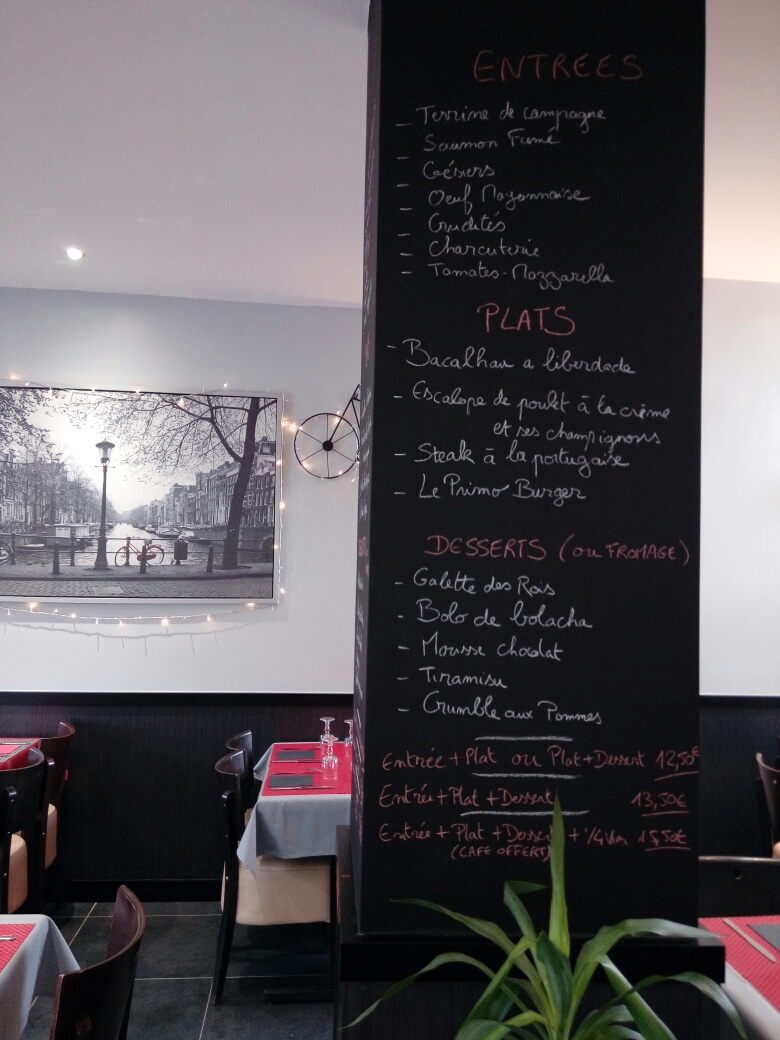 ENTREES
- Terrine de campagne
- Saumon Fumé
- Gésiers
- Oeuf Mayonnaise
- Crudités
- Charcuterie
- Tomates-Mozzarella
PLATS
- Bacalhau a liberdade
- Escalope de poulet à la crème
et ses champignons
- Steak à la portugaise
- Le Primo Burger
DESSERTS (ou FROMAGE)
- Galette des Rois
- Bolo de bolacha
- Mousse chocolat
- Tiramisu
- Crumble aux Pommes
Entrée + Plat ou Plat + Dessert 12,50€
Entrée + Plat + Dessert 13,50€
Entrée + Plat + Dessert + 1/4 Vin 15,50€
(CAFE OFFERT)